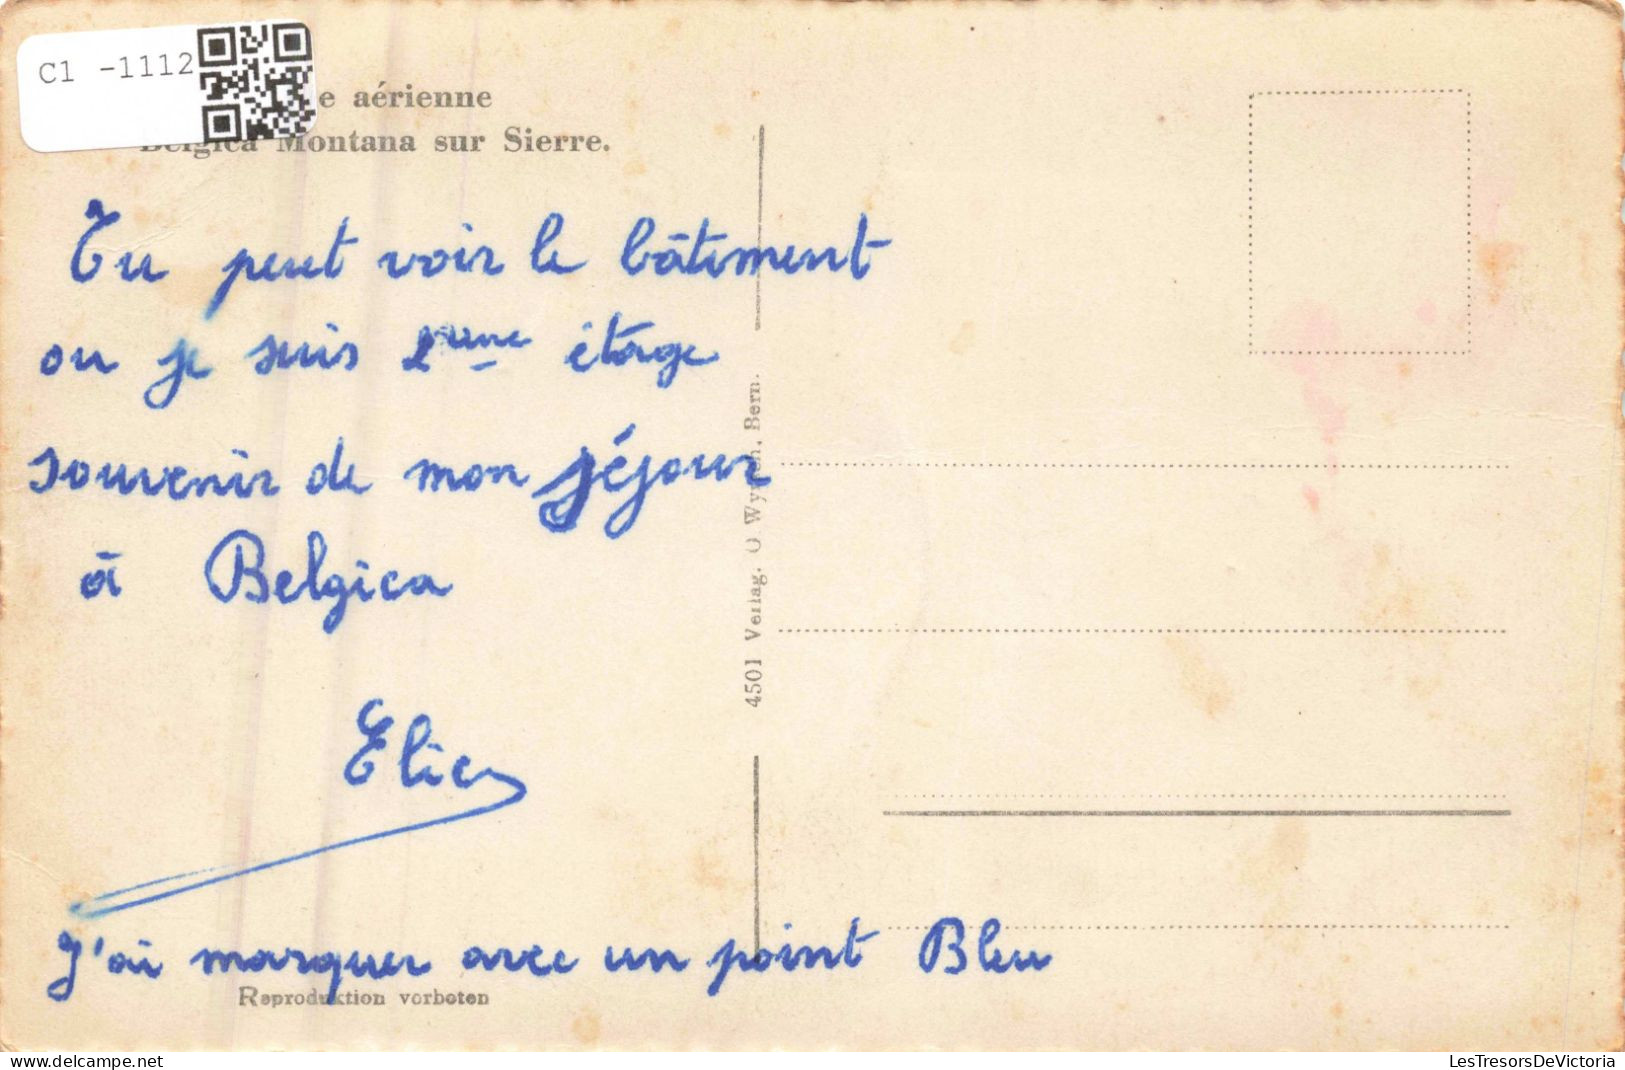 C1 -1112
e aérienne
Belgica Montana sur Sierre.
Tu peut voir le bâtiment
ou je suis 2ème étage
souvenir de mon séjour
à Belgica
Elie
J'ai marquer avec un point Bleu
Reproduktion verboten
4501 Verlag. O. Wyrsch, Bern.
LesTresorsDeVictoria
www.delcampe.net